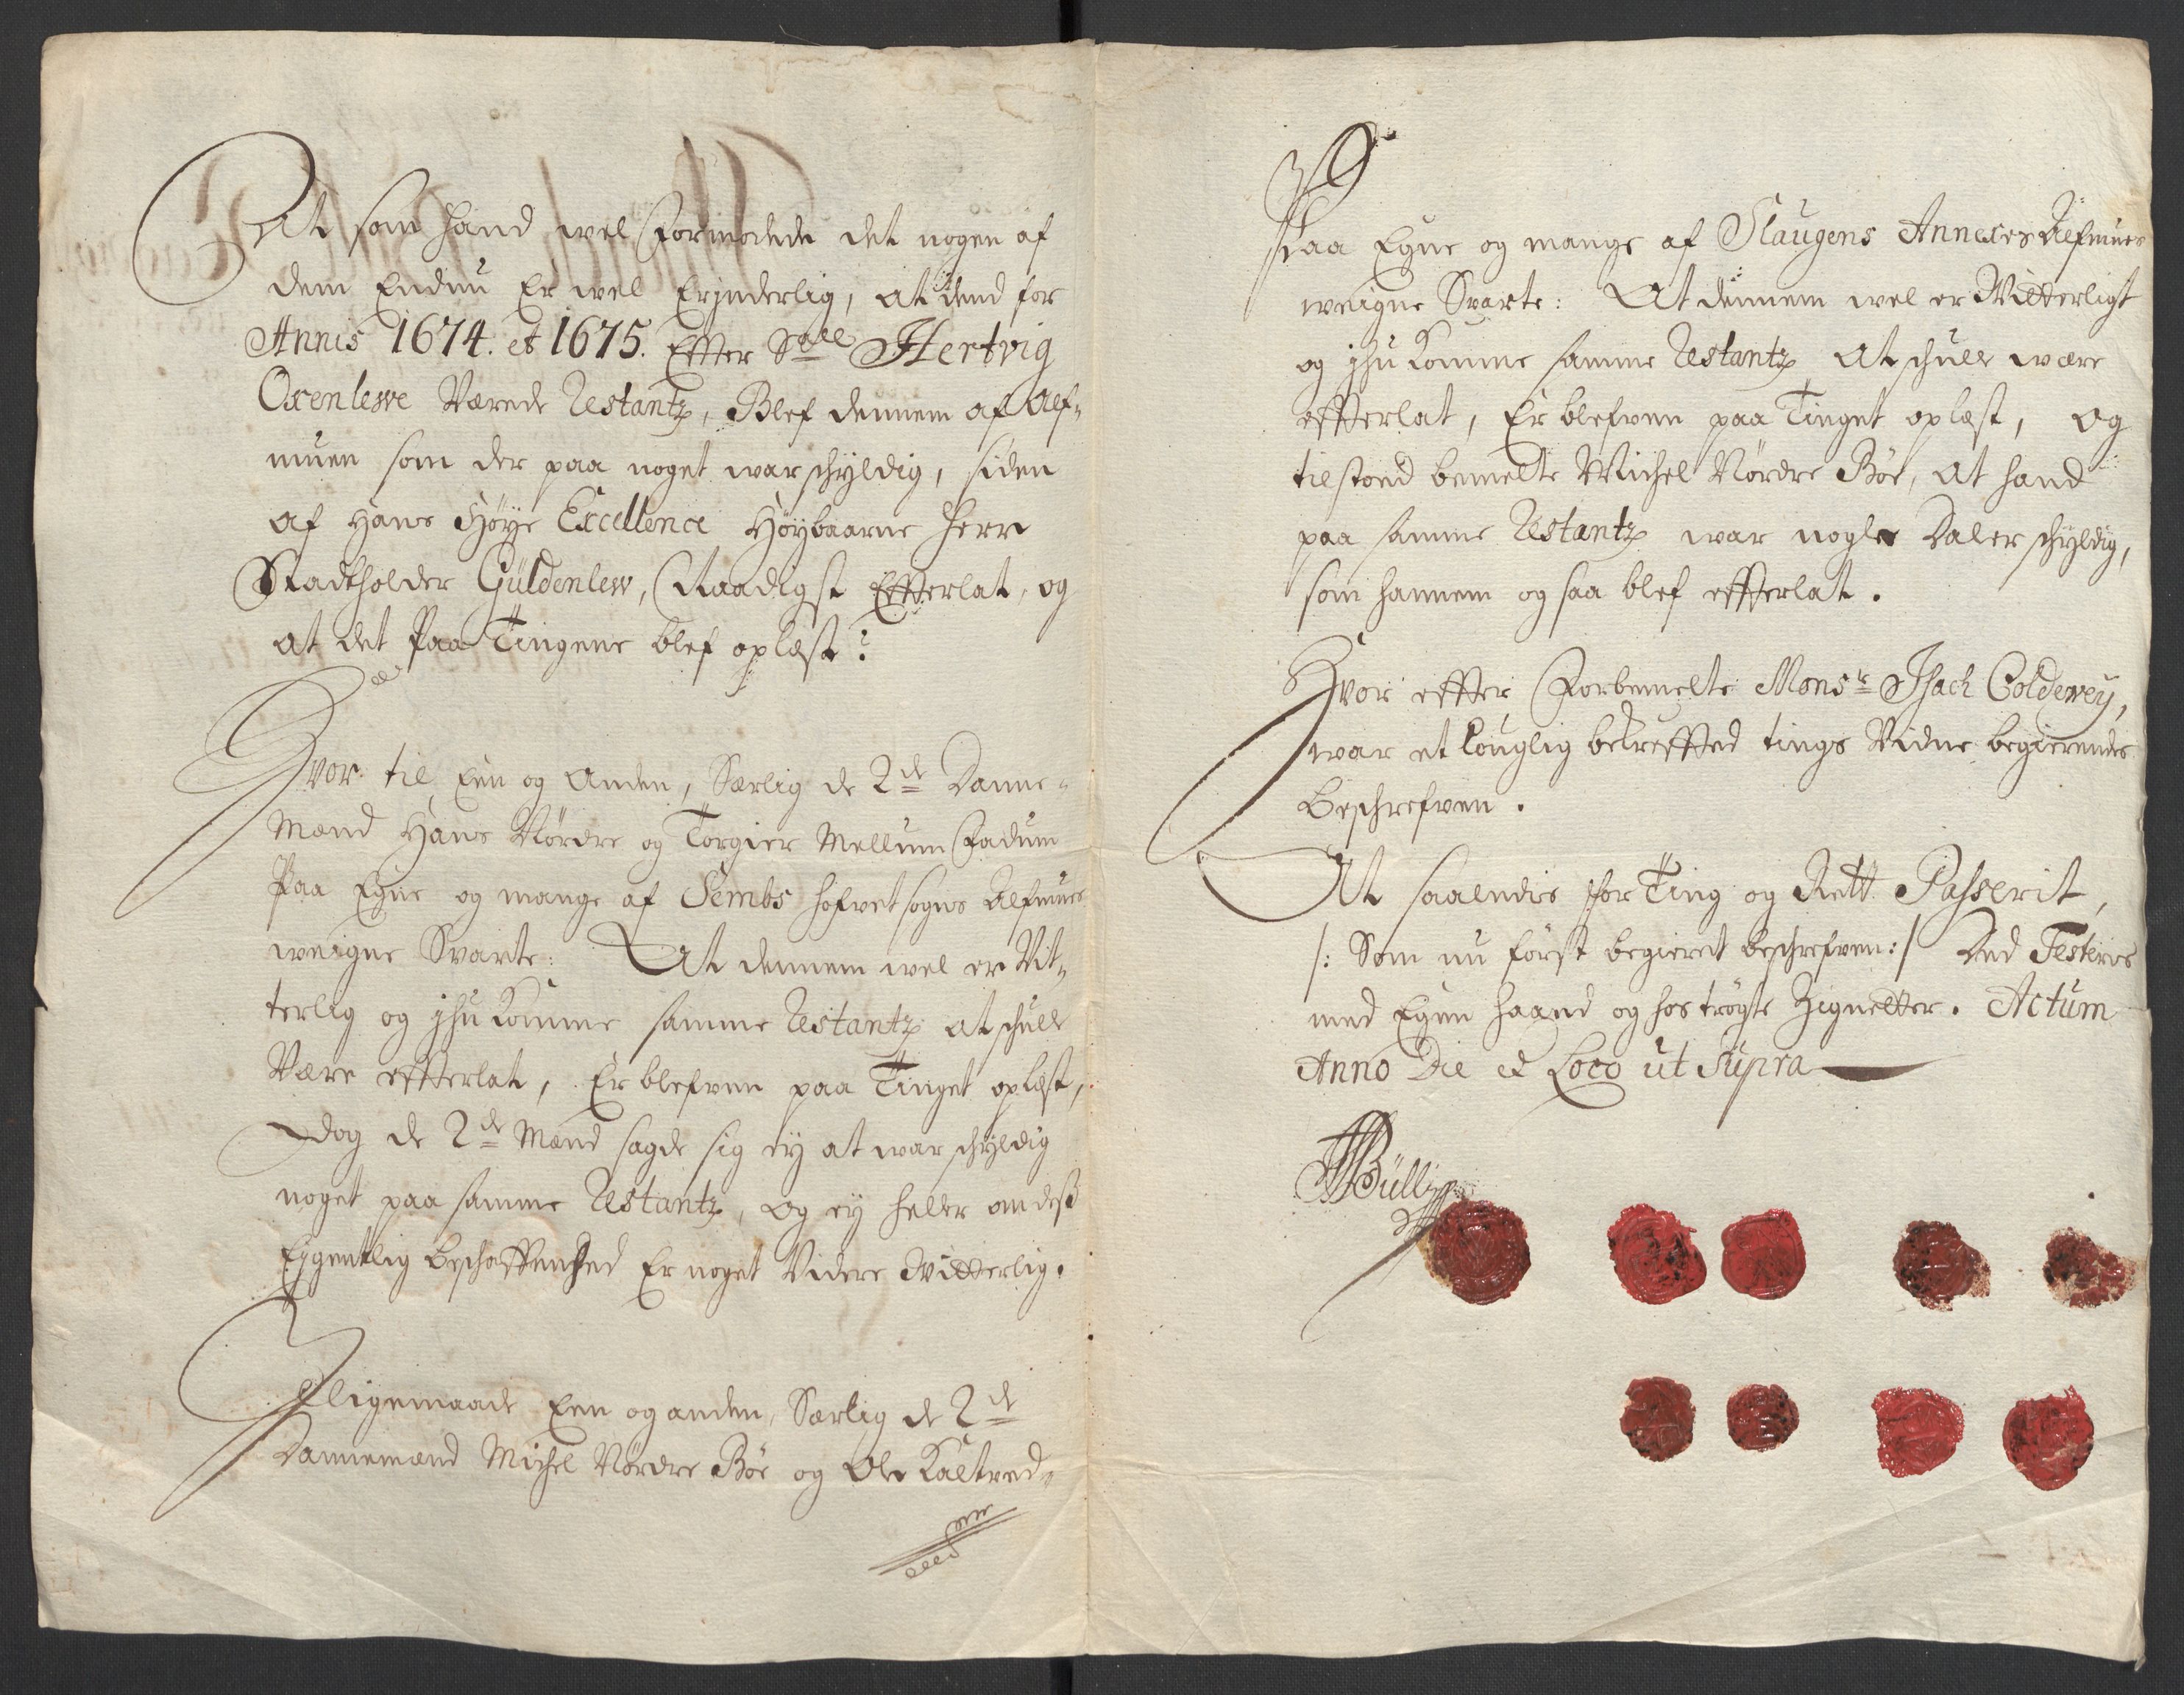 At som hand wel Formodede det nogen af
dem Endnu Er wel Erjnderlig, at dend for
Annis 1674. et 1675. Effter Sall Hertvig
Oxenlewe Værede Restantz, Blef dennem af Alf-
muen som der paa noget war schyldig, siden
af Hans Høye Excellence Høybaarne Herr
Stadtholder Güldenlew, Naadigst Effterlat, og
at det Paa Tingene blef oplæst?
Hvor til Een og Anden, Særlig de 2de Danne-
Mænd Hans Nordre og Torgier Mellum Fadum
Paa Egne og mange af Sembs hofvet sogns Alfmues
weigne Svarte: At dennem wel er Vit-
terlig og jhukomme samme Restantz at schulle
Være effterlat, Er blefven paa Tinget oplæst,
dog de 2de Mænd sagde sig ey at war schyldig
noget paa samme Restantz, og ey heller om dess
Eigentlig beschaffenhed Er noget Videre Witterlig.
Jligemaade Een og anden, Særlig de 2de
Dannemænd Michel Nordre Böe og Ole Kaltved-
Paa Egne og mange af Slaugens Annexes Alfmues
weigne Svarte: At dennem wel er Witterligt
og jhukomme samme Restantz at schulle være
effterlat, Er blefven paa Tinget oplæst, og
tilstoed bemelte Michel Nordre Böe, at hand
paa samme Restantz war nogle Daler schyldig,
som hannem og saa blef effterlat.
Hvor effter Forbemelte Monsr Jsach Coldewey,
war et louglig bekrefftted tings Vidne begierendes
beschrefven.
At saaledis for Ting og Rett Passerit,
/: Som nu først begieret beschrefven:/ Ded Testeris
med Egen haand og hoströgte Zignetter. Actum
Anno Die et Loco ut Supra